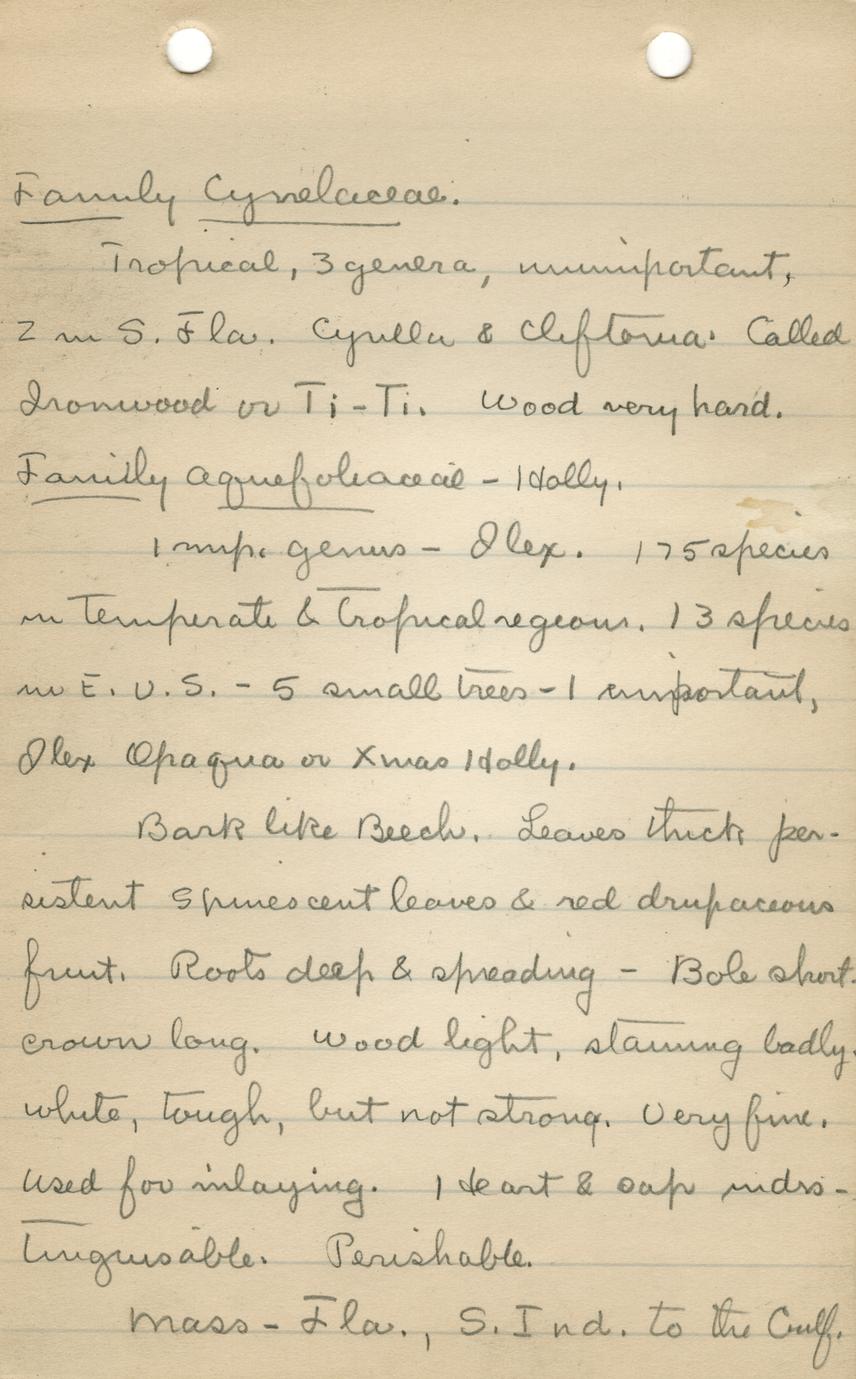 Family Cyrelaceae.
Tropical, 3 genera, unimportant,
2 in S. Fla. Cyrilla & Cliftonia. Called
Ironwood or Ti-Ti. Wood very hard.
Family Aquefoliaceae - Holly.
1 imp. genus - Ilex. 175 species
in Temperate & Tropical regeons. 13 species
in E. U.S. - 5 small trees - 1 important,
Ilex Opaqua or Xmas Holly.
Bark like Beech. Leaves thick per-
sistent spinescent leaves & red drupaceous
fruit. Roots deep & spreading - Bole short.
crown long. Wood light, staining badly.
white, tough, but not strong. Very fine.
Used for inlaying. Heart & sap indis-
tinguisable. Perishable.
Mass - Fla., S. Ind. to the Gulf.